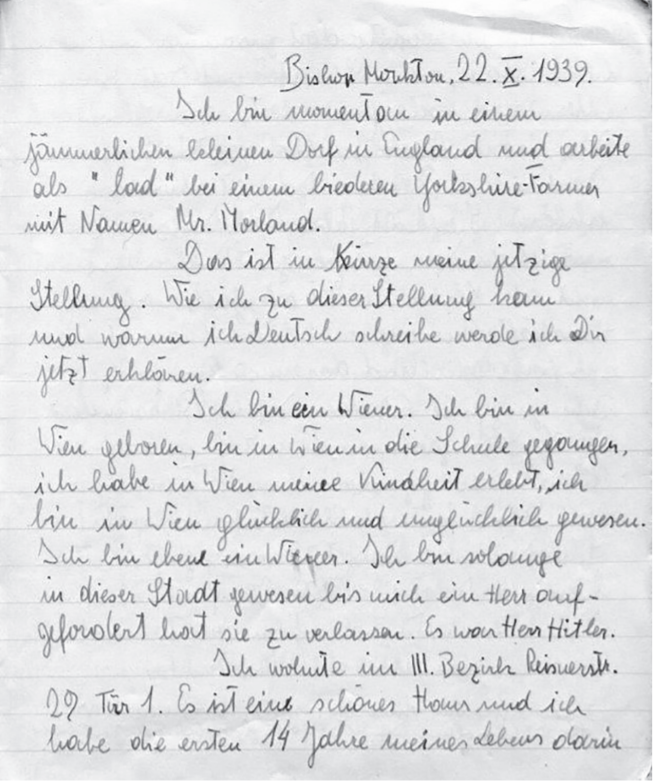 Bishop Monkton, 22. X. 1939.
Ich bin momentan in einem
jämmerlichen kleinen Dorf in England und arbeite
als "lad" bei einem biederen Yorkshire-Farmer
mit Namen Mr. Morland.
Das ist in Kürze meine jetzige
Stellung. Wie ich zu dieser Stellung kam
und warum ich Deutsch schreibe werde ich Dir
jetzt erklären.
Ich bin ein Wiener. Ich bin in
Wien geboren, bin in Wien in die Schule gegangen,
ich habe in Wien meine Kindheit erlebt, ich
bin in Wien glücklich und unglücklich gewesen.
Ich bin eben ein Wiener. Ich bin solange
in dieser Stadt gewesen bis mich ein Herr auf-
gefordert hat sie zu verlassen. Es war Herr Hitler.
Ich wohnte im III. Bezirk Reisnerstr.
29 Tür 1. Es ist ein schönes Haus und ich
habe die ersten 14 Jahre meines Lebens darin